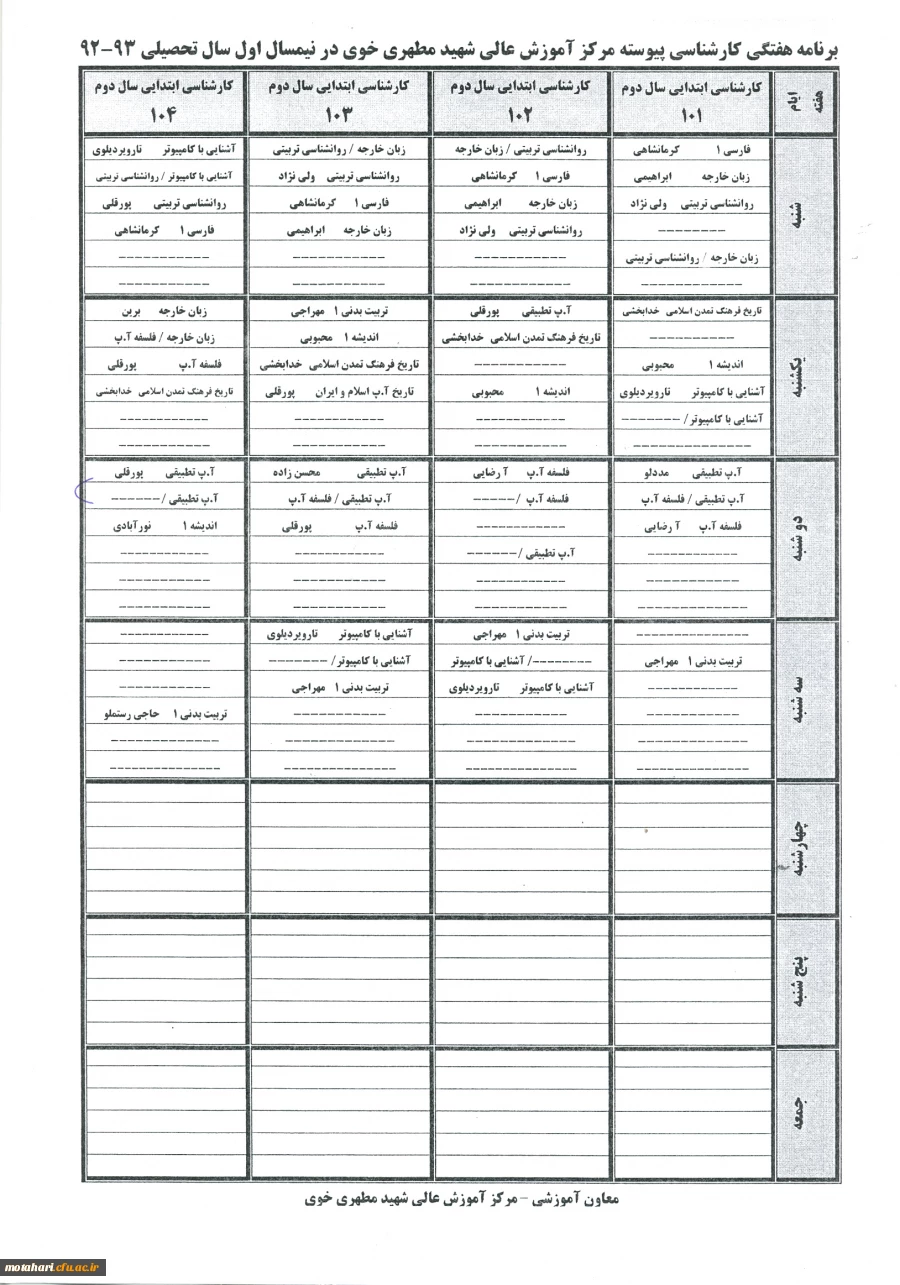 برنامه هفتگی کارشناسی پیوسته مرکز آموزش عالی شهید مطهری خوی در نیمسال اول سال تحصیلی ۹۳-۹۲
ایام هفته
کارشناسی ابتدایی سال دوم ۱۰۱
کارشناسی ابتدایی سال دوم ۱۰۲
کارشناسی ابتدایی سال دوم ۱۰۳
کارشناسی ابتدایی سال دوم ۱۰۴
شنبه
فارسی ۱ کرمانشاهی
زبان خارجه ابراهیمی
روانشناسی تربیتی ولی نژاد
--------
زبان خارجه / روانشناسی تربیتی
-----------
روانشناسی تربیتی / زبان خارجه
فارسی ۱ کرمانشاهی
زبان خارجه ابراهیمی
روانشناسی تربیتی ولی نژاد
-----------
-----------
زبان خارجه / روانشناسی تربیتی
روانشناسی تربیتی ولی نژاد
فارسی ۱ کرمانشاهی
زبان خارجه ابراهیمی
-----------
-----------
آشنایی با کامپیوتر تارویردیلوی
آشنایی با کامپیوتر / روانشناسی تربیتی
روانشناسی تربیتی پورقلی
فارسی ۱ کرمانشاهی
-----------
-----------
یکشنبه
تاریخ فرهنگ تمدن اسلامی خدابخشی
----------
اندیشه ۱ محبوبی
آشنایی با کامپیوتر تارویردیلوی
آشنایی با کامپیوتر / -------
--------------
آ.پ تطبیقی پورقلی
تاریخ فرهنگ تمدن اسلامی خدابخشی
-----------
اندیشه ۱ محبوبی
-----------
-----------
تربیت بدنی ۱ مهراجی
اندیشه ۱ محبوبی
تاریخ فرهنگ تمدن اسلامی خدابخشی
تاریخ آ.پ اسلام و ایران پورقلی
-----------
-----------
زبان خارجه برین
زبان خارجه / فلسفه آ.پ
فلسفه آ.پ پورقلی
تاریخ فرهنگ تمدن اسلامی خدابخشی
-----------
-----------
دو شنبه
آ.پ تطبیقی مددلو
آ.پ تطبیقی / فلسفه آ.پ
فلسفه آ.پ آ رضایی
-----------
-----------
-----------
فلسفه آ.پ آ رضایی
فلسفه آ.پ / -----
-----------
آ.پ تطبیقی / ------
-----------
-----------
آ.پ تطبیقی محسن زاده
آ.پ تطبیقی / فلسفه آ.پ
فلسفه آ.پ پورقلی
-----------
-----------
-----------
آ.پ تطبیقی پورقلی
آ.پ تطبیقی / ------
اندیشه ۱ نورآبادی
-----------
-----------
-----------
سه شنبه
--------------
تربیت بدنی ۱ مهراجی
-----------
-----------
-------------
-------------
تربیت بدنی ۱ مهراجی
-------/ آشنایی با کامپیوتر
آشنایی با کامپیوتر تارویردیلوی
-----------
-------------
-------------
آشنایی با کامپیوتر تارویردیلوی
آشنایی با کامپیوتر / -------
تربیت بدنی ۱ مهراجی
-----------
-------------
-------------
-----------
-----------
-----------
تربیت بدنی ۱ حاجی رستملو
-------------
-------------
چهارشنبه
پنج شنبه
جمعه
معاون آموزشی - مرکز آموزش عالی شهید مطهری خوی
motahari.cfu.ac.ir